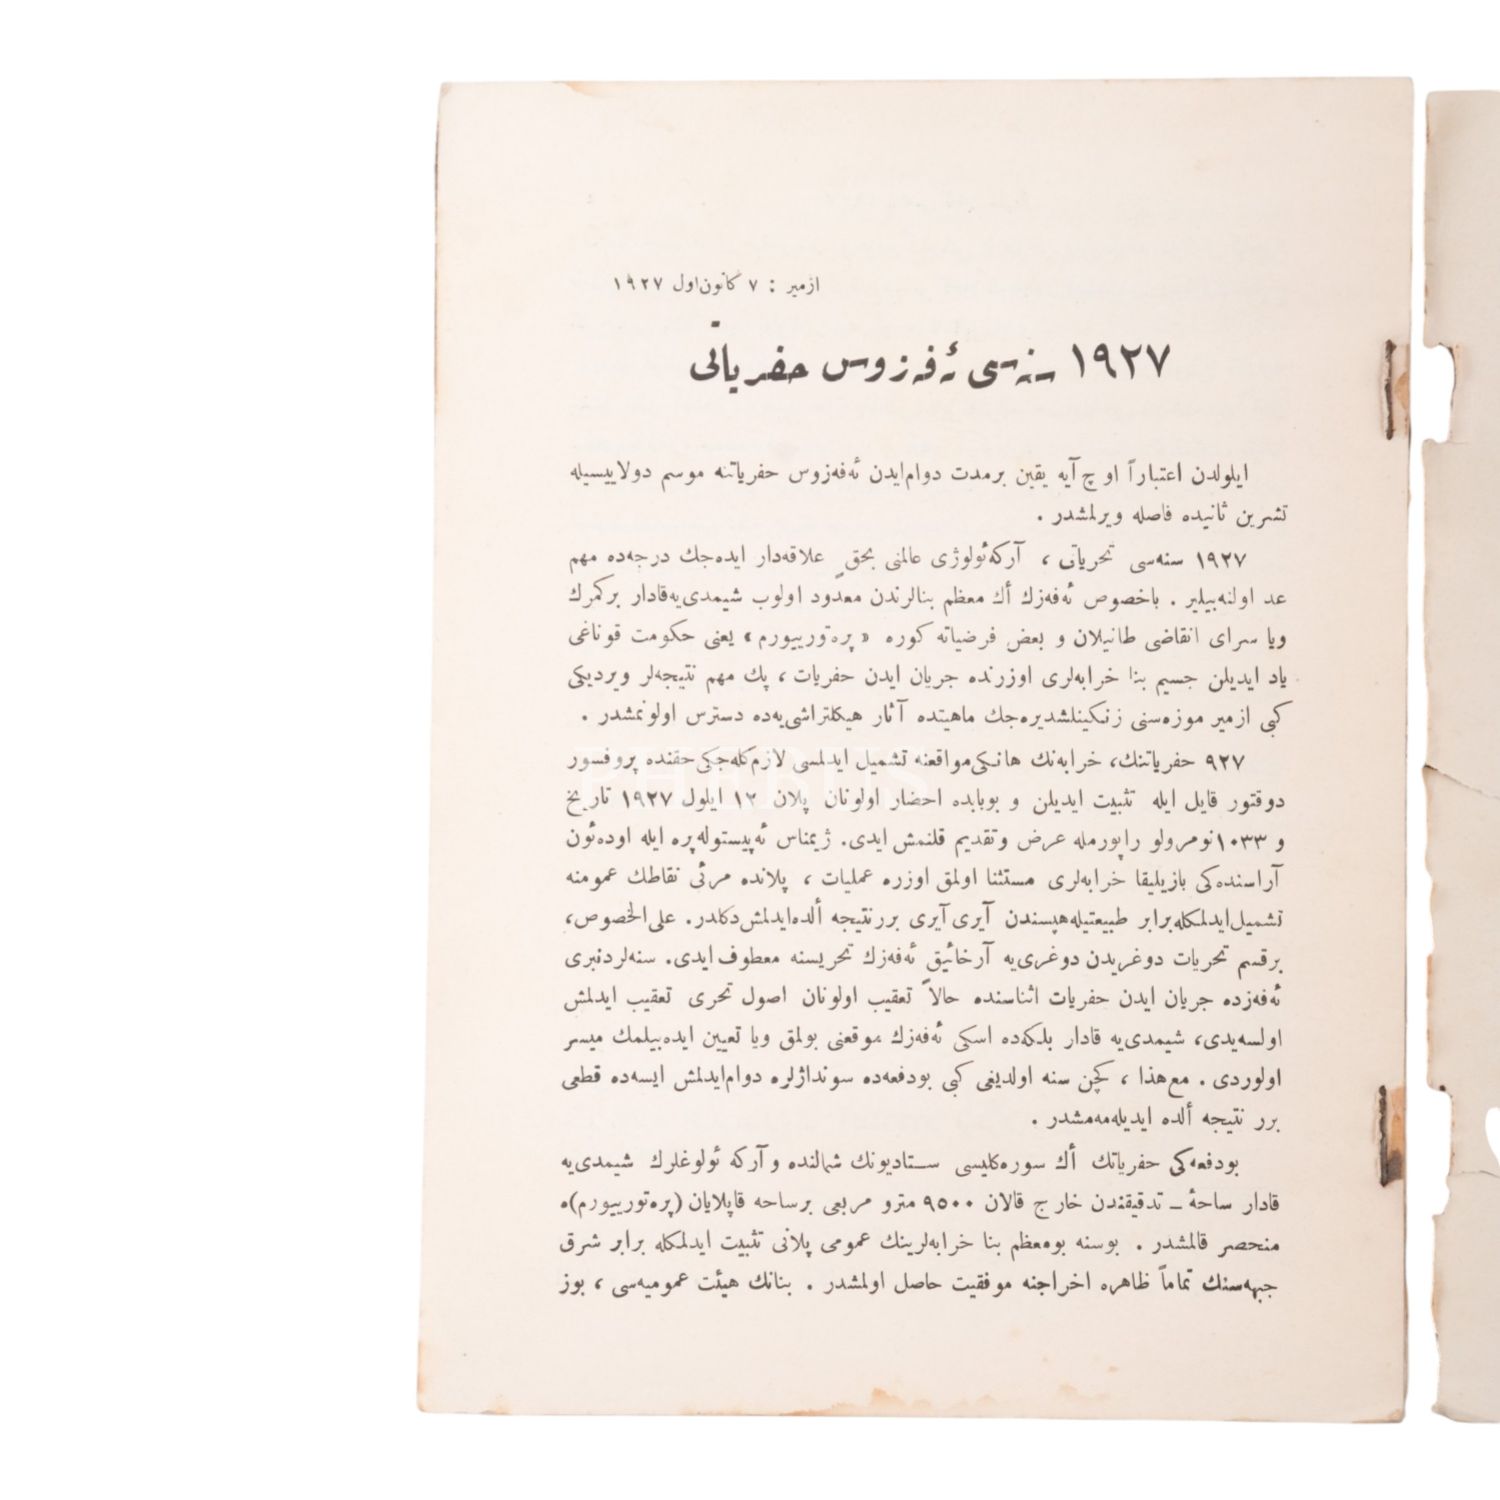 ازمیر : ٧ كانون‌اول ١٩٢٧
١٩٢٧ سنه‌سی ئه‌فه‌زوس حفریاتی
ایلولدن اعتباراً اوچ آیه یقین برمدت دوام‌ایدن ئه‌فه‌زوس حفریاتنه موسم دولاییسیله
تشرین ثانیده فاصله ویرلمشدر .
١٩٢٧ سنه‌سی تحریاتی ، آركه‌ئولوژی عالمنی بحقٍ علاقه‌دار ایده‌جك درجه‌ده مهم
عد اولنه‌بیلیر . باخصوص ئه‌فه‌زك أك معظم بنالرندن معدود اولوب شیمدی‌یه‌قادار بركمرك
ویا سرای انقاضی طانیلان و بعض فرضیاته كوره « پره‌تورییورم » یعنی حكومت قوناغی
یاد ایدیلن جسیم بنا خرابه‌لری اوزرنده جریان ایدن حفریات ، پك مهم نتیجه‌لر ویردیكی
كبی ازمیر موزه‌سنی زنكینلشدیره‌جك ماهیتده آثار هیكلتراشی‌یه‌ده دسترس اولونمشدر .
٩٢٧ حفریاتنك، خرابه‌نك هانكی‌مواقعنه تشمیل ایدلمسی لازم‌كله‌جكی‌حقنده پروفسور
دوقتور قایل ایله تثبیت ایدیلن و بوبابده احضار اولونان پلان ١٢ ایلول ١٩٢٧ تاریخ
و ١٠٣٣نومرولو راپورمله عرض وتقدیم قلنمش ایدی. ژیمناس ئه‌پیستوله‌پره ایله اوده‌ئون
آراسنده‌كی بازیلیقا خرابه‌لری مستثنا اولمق اوزره عملیات ، پلانده مرئی نقاطك عمومنه
تشمیل‌ایدلمكله‌برابر طبیعتیله‌هپسندن آیری آیری بررنتیجه ألده‌ایدلمش‌دكلدر. علی‌الخصوص،
برقسم تحریات دوغریدن دوغری‌یه آرخائیق ئه‌فه‌زك تحریسنه معطوف‌ایدی. سنه‌لردنبری
ئه‌فه‌زده جریان ایدن حفریات اثناسنده حالاً تعقیب اولونان اصول تحری تعقیب ایدلمش
اولسه‌یدی، شیمدی‌یه قادار بلكه‌ده اسكی ئه‌فه‌زك موقعنی بولمق ویا تعیین ایده‌بیلمك میسر
اولوردی . مع‌هذا ، كچن سنه اولدیغی كبی بودفعه‌ده سونداژلره دوام‌ایدلمش ایسه‌ده قطعی
برر نتیجه ألده ایدیله‌مه‌مشدر .
بودفعه‌كی حفریاتك أك سوره‌كلیسی ستادیونك شمالنده و آركه ئولوغلرك شیمدی‌یه
قادار ساحهٔ ـ تدقیقندن خارج قالان ٩٥٠٠ مترو مربعی برساحه قاپلایان (پره‌تورییورم)ه
منحصر قالمشدر . بوسنه بومعظم بنا خرابه‌لرینك عمومی پلانی تثبیت ایدلمكله برابر شرق
جبهه‌سنك تماماً ظاهره اخراجنه موفقیت حاصل اولمشدر . بنانك هیئت عمومیه‌سی ، بوز